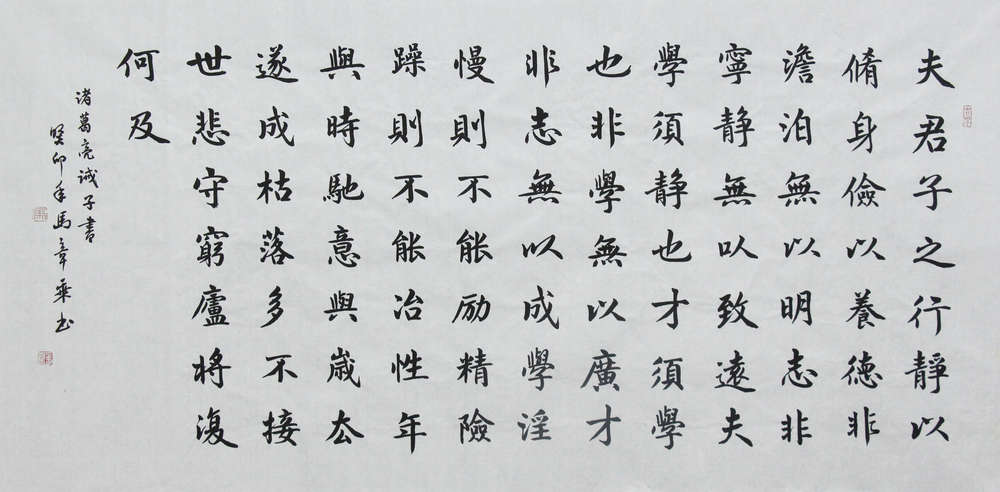 夫君子之行靜以
脩身儉以養德非
澹泊無以明志非
寧静無以致遠夫
學須静也才須學
也非學無以廣才
非志無以成學淫
慢則不能励精險
躁則不能冶性年
與時馳意與歲去
遂成枯落多不接
世悲守窮廬将復
何及
诸葛亮诫子書
癸卯年馬章乘书